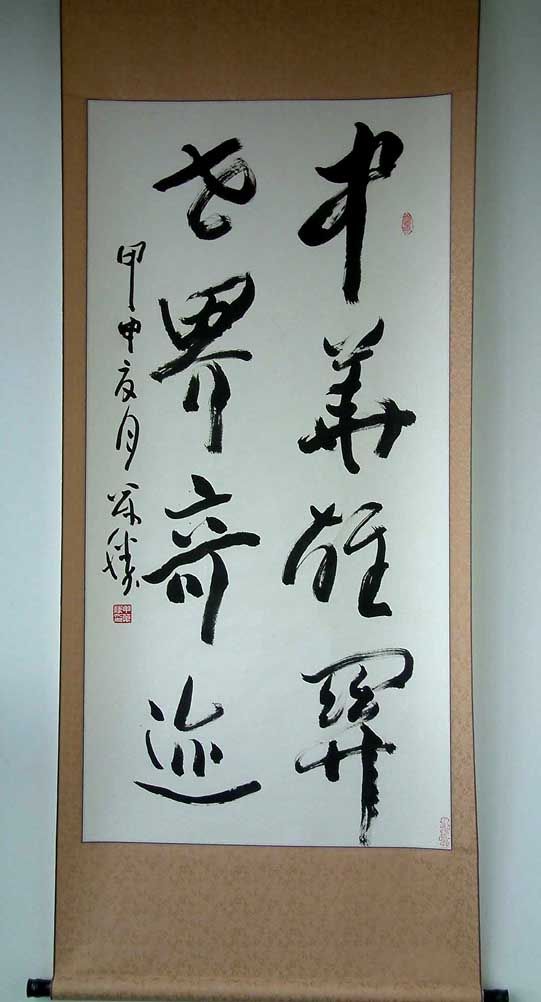 中华雄关
世界奇迹
甲申夏月